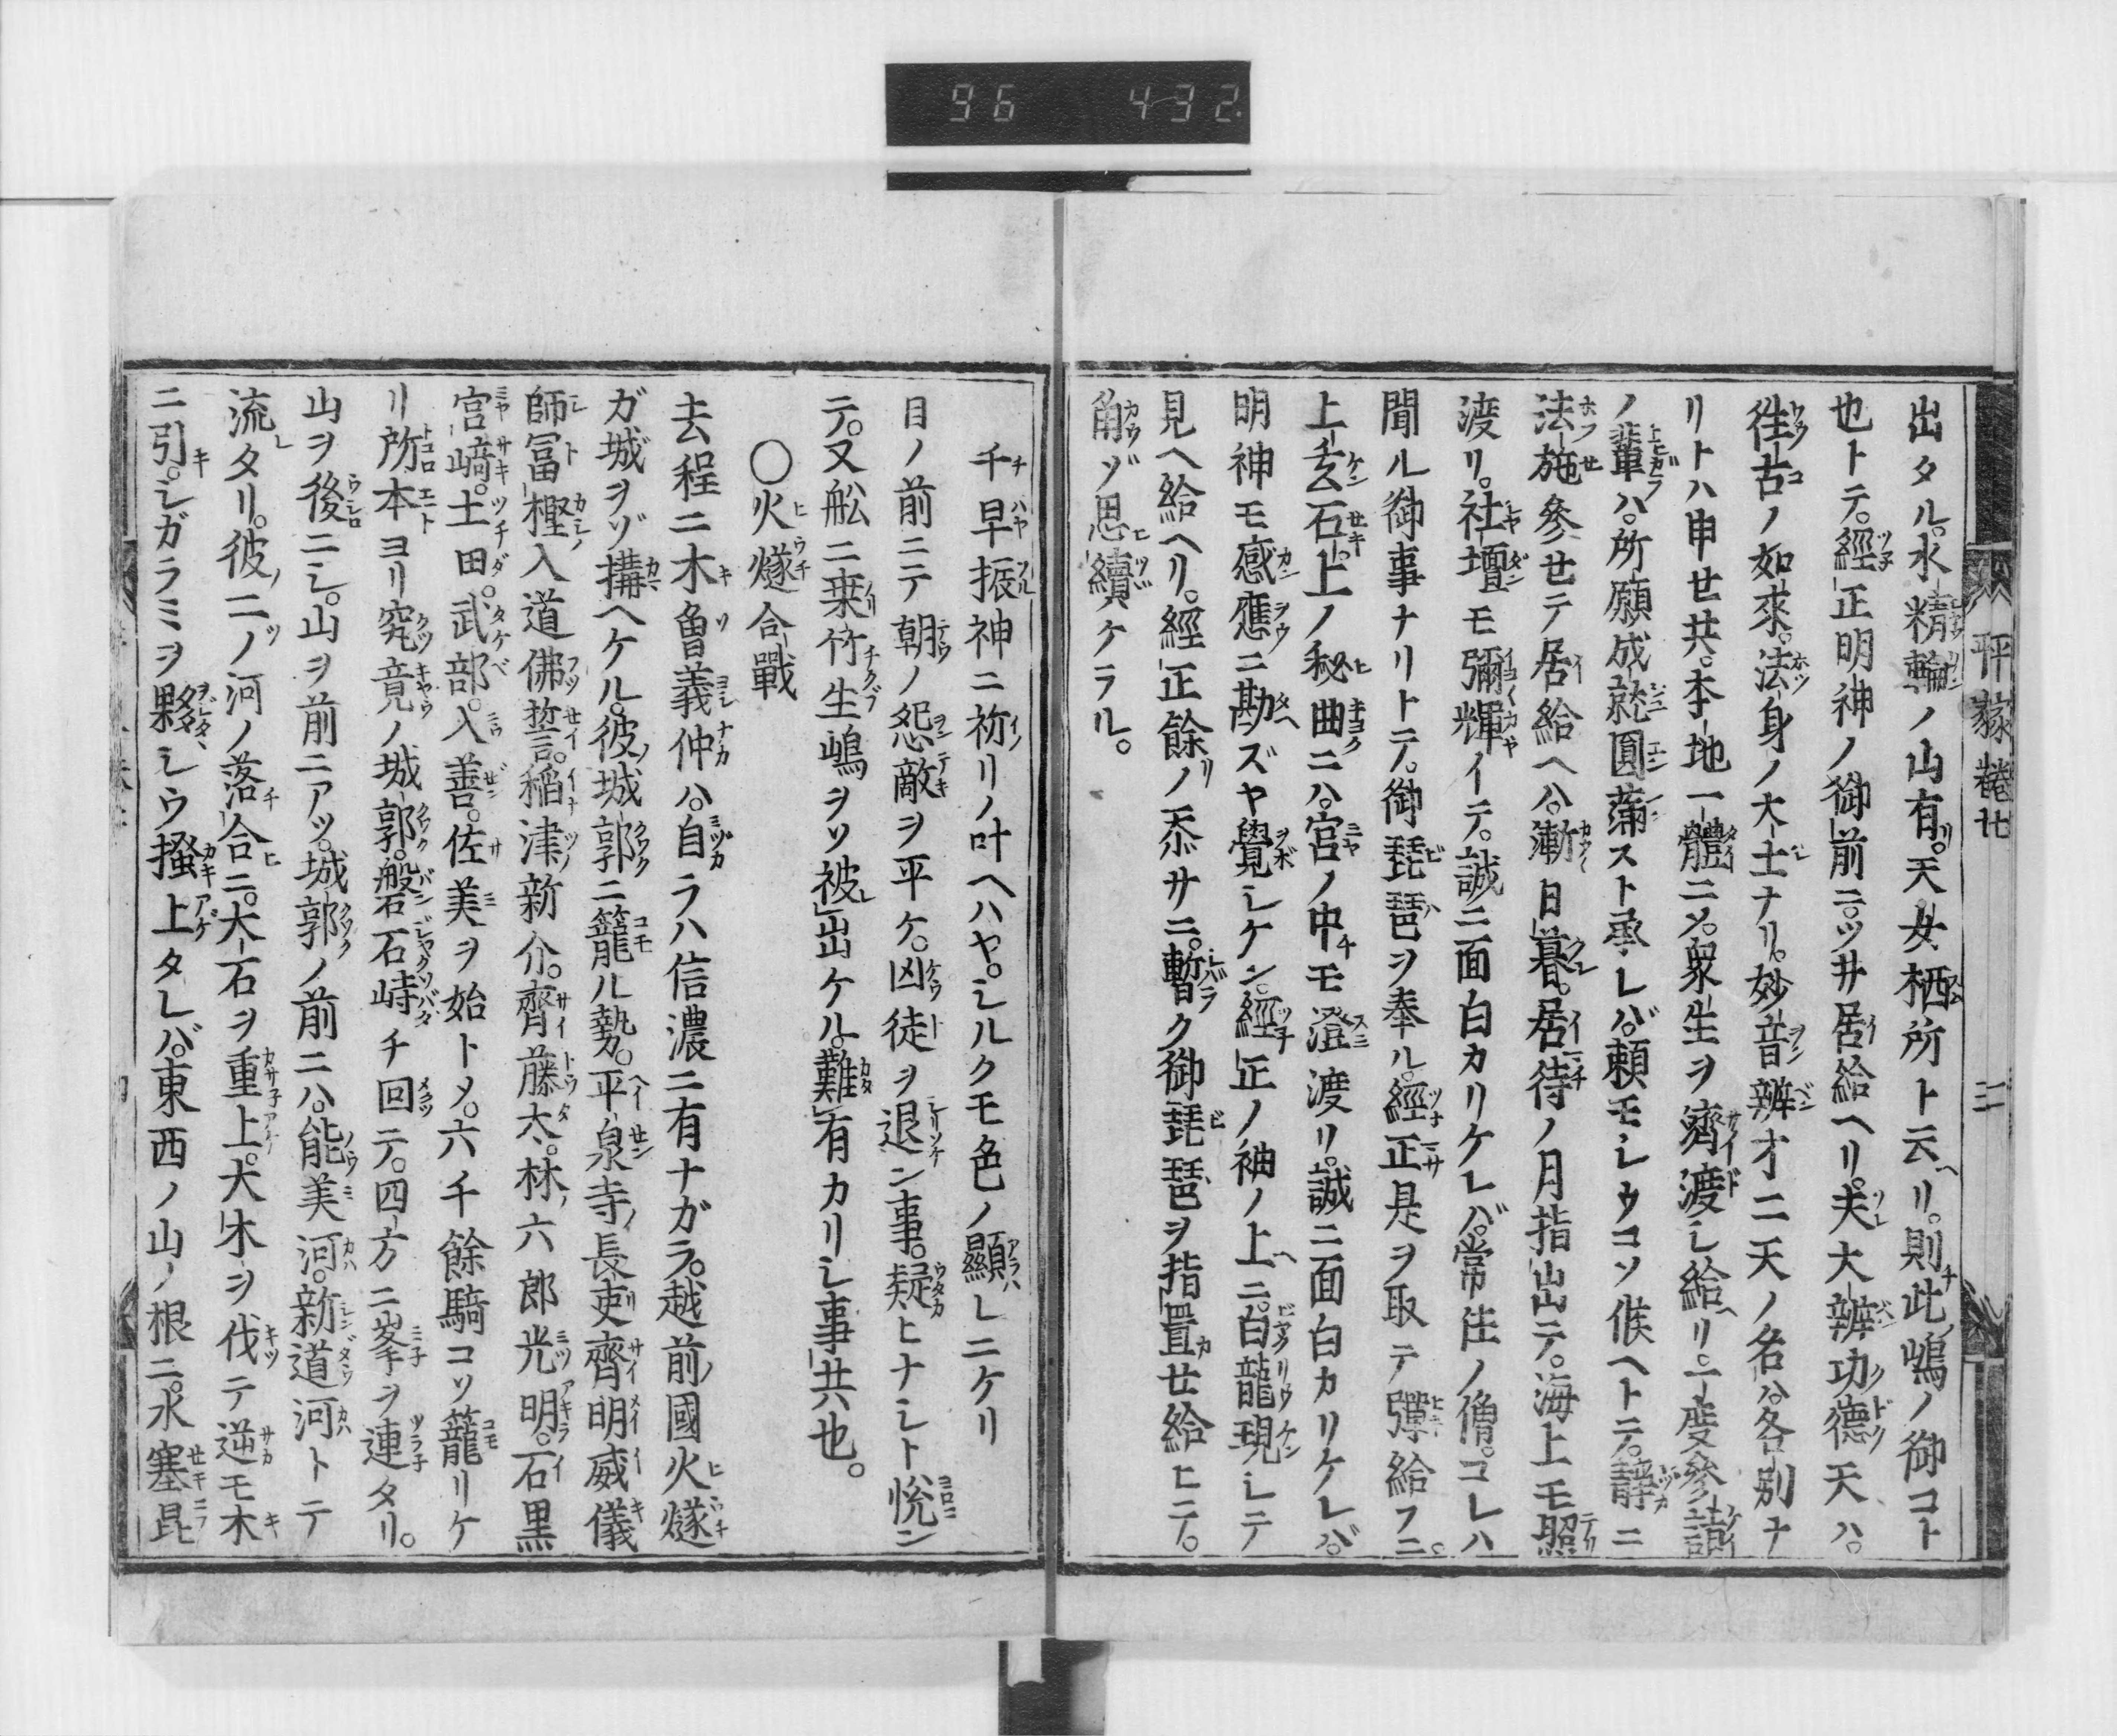 96 432
平家巻廿
二
出タル。水精輪ノ山有リ。天女栖所ト云ヘリ。則チ此ノ嶋ノ御コト
也トテ。經正明神ノ御前ニツ井居給ヘリ。夫レ大辨功德天ハ。
徃古ノ如來。法身ノ大士ナリ。妙音辨才二天ノ名ハ各別ナ
リトハ申セ共。本地一體ニメ。衆生ヲ濟渡シ給ヘリ。一度參詣
ノ輩ハ。所願成就圓滿スト承レバ。頼モシウコソ候ヘトテ。靜ニ
法施參セテ居給ヘハ。漸日暮。居待ノ月指出テ。海上モ照
渡リ。社壇モ彌輝イテ。誠ニ面白カリケレバ。常住ノ僧。コレハ
聞ル御事ナリトテ。御琵琶ヲ奉ル。經正是ヲ取テ彈給フニ。
上玄石上ノ秘曲ニハ。宮ノ中チモ澄渡リ。誠ニ面白カリケレバ。
明神モ感應ニ勘ヘズヤ覺シケン。經正ノ袖ノ上ヘニ。白龍現シテ
見ヘ給ヘリ。經正餘リノ忝サニ。暫ク御琵琶ヲ指置セ給ヒテ。
角ゾ思續ケラル。
千早振神ニ祢リノ叶ヘハヤ。シルクモ色ノ顯レニケリ
目ノ前ニテ朝ノ怨敵ヲ平ケ。凶徒ヲ退ン事。疑ヒナシト悦ン
テ。又舩ニ乗竹生嶋ヲソ被レ出ケル。難有カリシ事共也。
○火燧合戰
去程ニ木曾義仲ハ。自ラハ信濃ニ有ナガラ。越前ノ國火燧
ガ城ヲゾ搆ヘケル。彼ノ城郭ニ籠ル勢。平泉寺ノ長吏齊明威儀
師冨樫入道佛誓。稲津新介。齊藤太。林ノ六郎光明。石黒
宮﨑。土田。武部。入善。佐美ヲ始トメ。六千餘騎コソ籠リケ
リ所本ヨリ究竟ノ城郭。盤石峙チ回テ。四方ニ峯ヲ連タリ。
山ヲ後ニシ。山ヲ前ニアツ。城郭ノ前ニハ。能美河。新道河トテ
流レタリ。彼ノ二ツノ河ノ落チ合ヒニ。大石ヲ重上。大木ヲ伐テ逆モ木
ニ引。シガラミヲ夥シウ搔上タレバ。東西ノ山ノ根ニ。水塞昆